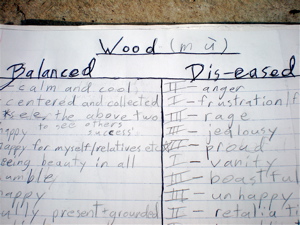 Wood (mù)
Balanced
Dis-eased
calm and cool
centered and collected
the above two
to see others
happy success
happy for myself/relatives etc
being beauty in all
humble
happy
fully present+grounded
III - anger
I - frustration/
III - rage
III - jealousy
II - proud
I - vanity
II - boastful
III - unhappy
III - retaliati